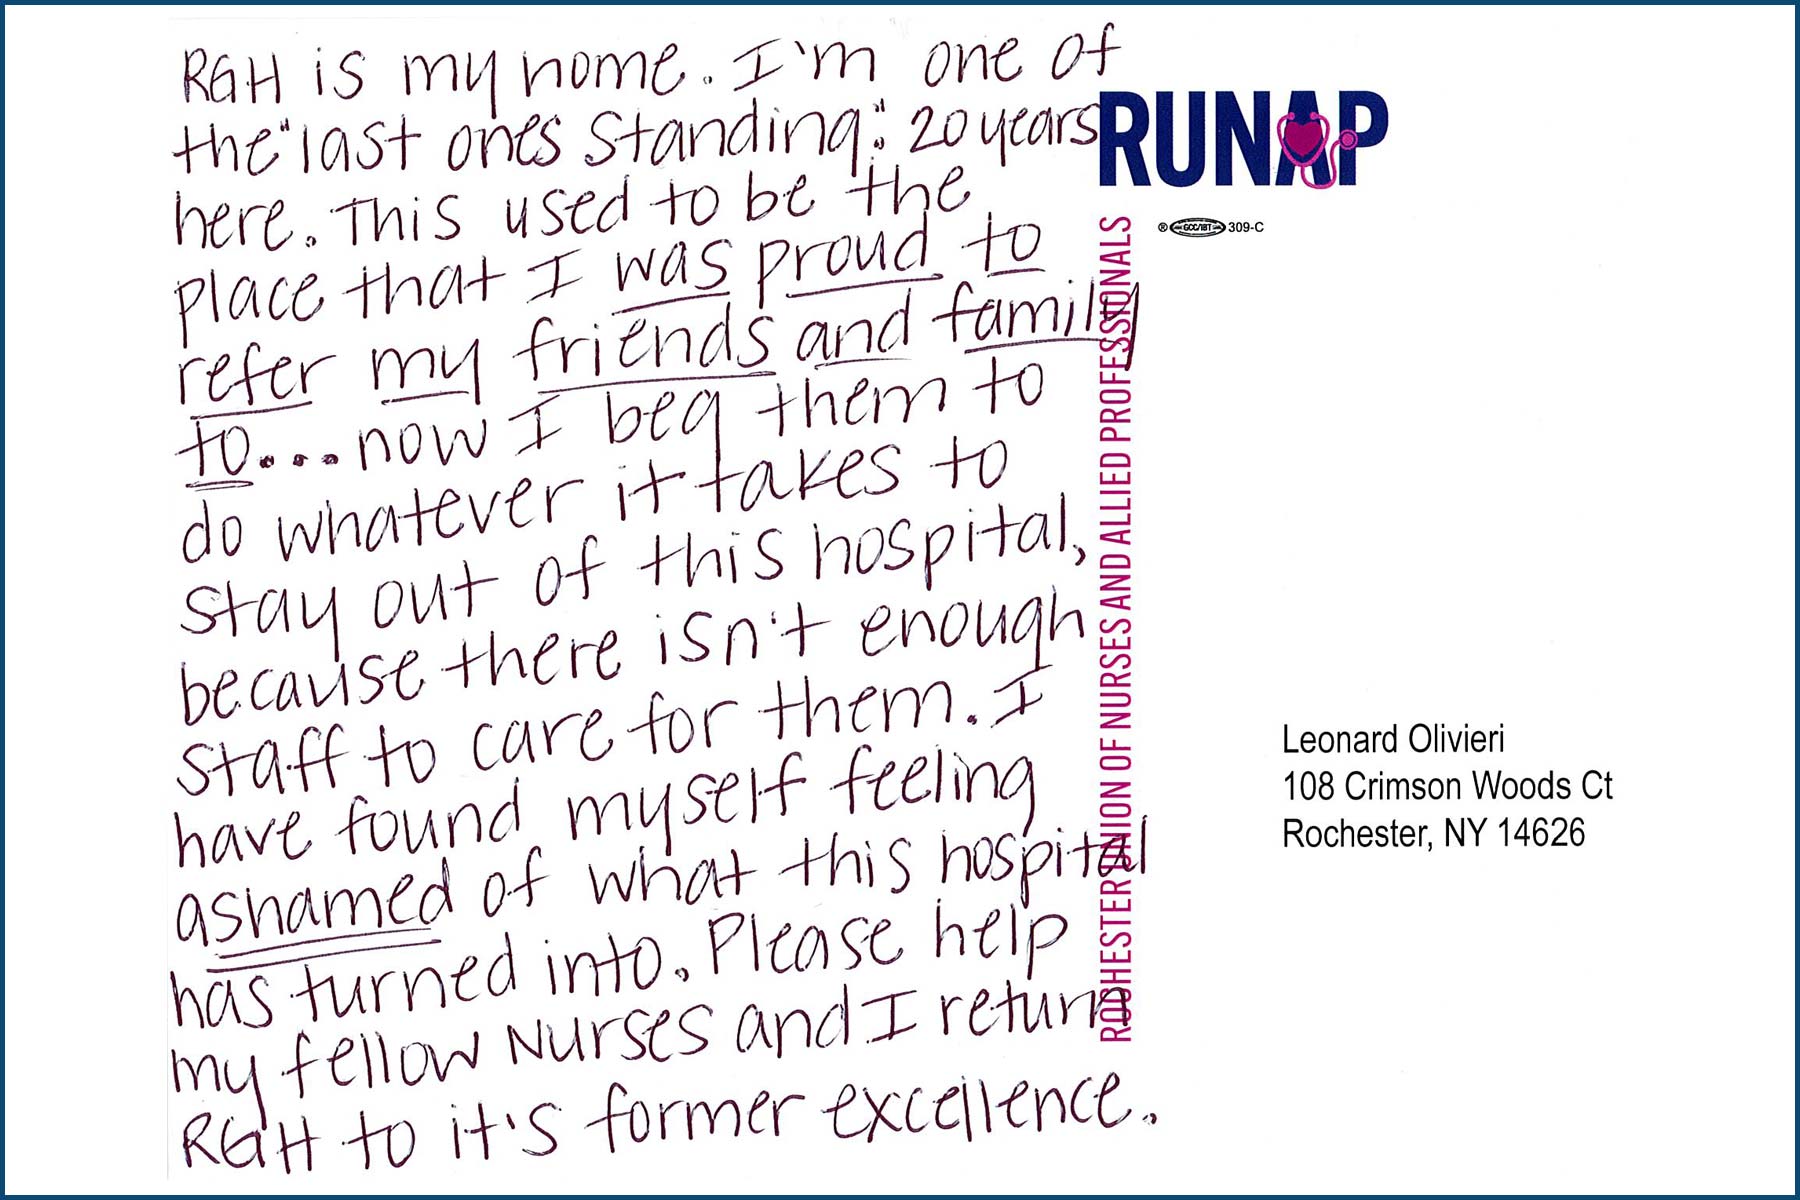 RGH is my home. I'm one of
the "last ones standing": 20 years
here. This used to be the
place that I was proud to
refer my friends and family
to... now I beg them to
do whatever it takes to
stay out of this hospital,
because there isn't enough
staff to care for them. I
have found myself feeling
ashamed of what this hospital
has turned into. Please help
my fellow Nurses and I return
RGH to it's former excellence.
RUNAP
® GCC/IBT 309-C
ROCHESTER UNION OF NURSES AND ALLIED PROFESSIONALS
Leonard Olivieri
108 Crimson Woods Ct
Rochester, NY 14626